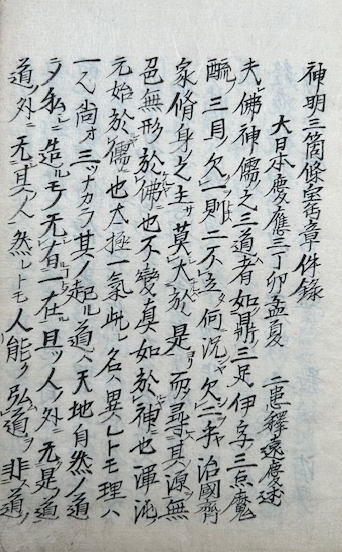 神明三箇條密章件錄
大日本慶應三丁卯孟夏 二恵釋遠慶述
夫レ佛神儒之三道者如鼎三足伊字三点魔
醯三目欠一則二不立何況欠二乎治國齊
家脩身之主莫大於是而尋其源無
色無形於佛也不變真如於神也渾沌
元始於儒也太極一氣此レ名ハ異レトモ理ハ
一尚オ三ツナカラ其ノ起ル道ハ天地自然ノ道
ヲ私ニ造ルモノ无有一在且ツ人ノ外ニ无是道
道ノ外ニ无其人然レトモ人能ク弘道ヲ非道ノ